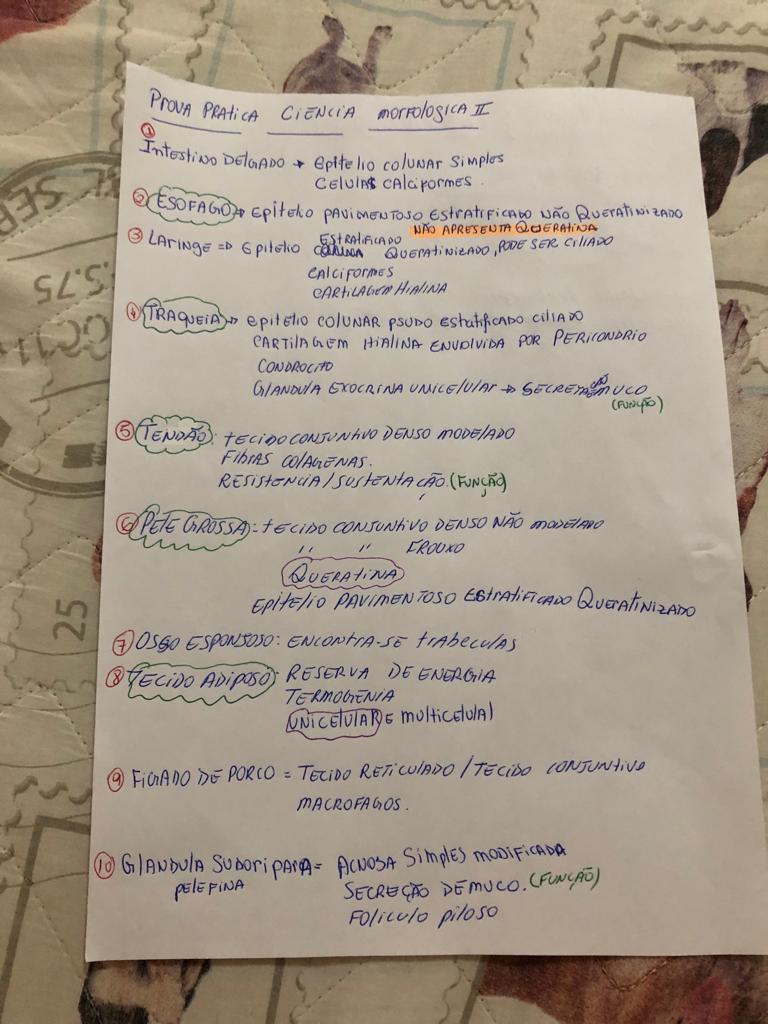 PROVA PRATICA CIENCIA MORFOLOGICA II
① INTESTINO DELGADO → EPITELIO COLUNAR SIMPLES
CELULAS CALCIFORMES.
② ESOFAGO → EPITELIO PAVIMENTOSO ESTRATIFICADO NÃO QUERATINIZADO
NÃO APRESENTA QUERATINA
③ LARINGE => EPITELIO ESTRATIFICADO QUERATINIZADO, PODE SER CILIADO
CALCIFORMES
CARTILAGEM HIALINA
④ TRAQUEIA → EPITELIO COLUNAR PSUDO ESTATIFICADO CILIADO
CARTILAGEM HIALINA ENVOLVIDA POR PERICONDRIO
CONDROCITO
GLANDULA EXOCRINA UNICELULAR → SECRETA MUCO
(FUNÇÃO)
⑤ TENDÃO: TECIDO CONJUNTIVO DENSO MODELADO
FIBRAS COLAGENAS.
RESISTENCIA/SUSTENTAÇÃO. (FUNÇÃO)
⑥ PELE GROSSA: TECIDO CONJUNTIVO DENSO NÃO MODELADO
" " FROUXO
QUERATINA
EPITELIO PAVIMENTOSO ESTRATIFICADO QUERATINIZADO
⑦ OSSO ESPONJOSO: ENCONTRA-SE TRABECULAS
⑧ TECIDO ADIPOSO: RESERVA DE ENERGIA
TERMOGENIA
UNICELULAR E MULTICELULAL
⑨ FIGADO DE PORCO = TECIDO RETICULADO / TECIDO CONJUNTIVO
MACROFAGOS.
⑩ GLANDULA SUDORIPARA = ACNOSA SIMPLES MODIFICADA
PELE FINA SECREÇÃO DE MUCO. (FUNÇÃO)
FOLICULO PILOSO
25